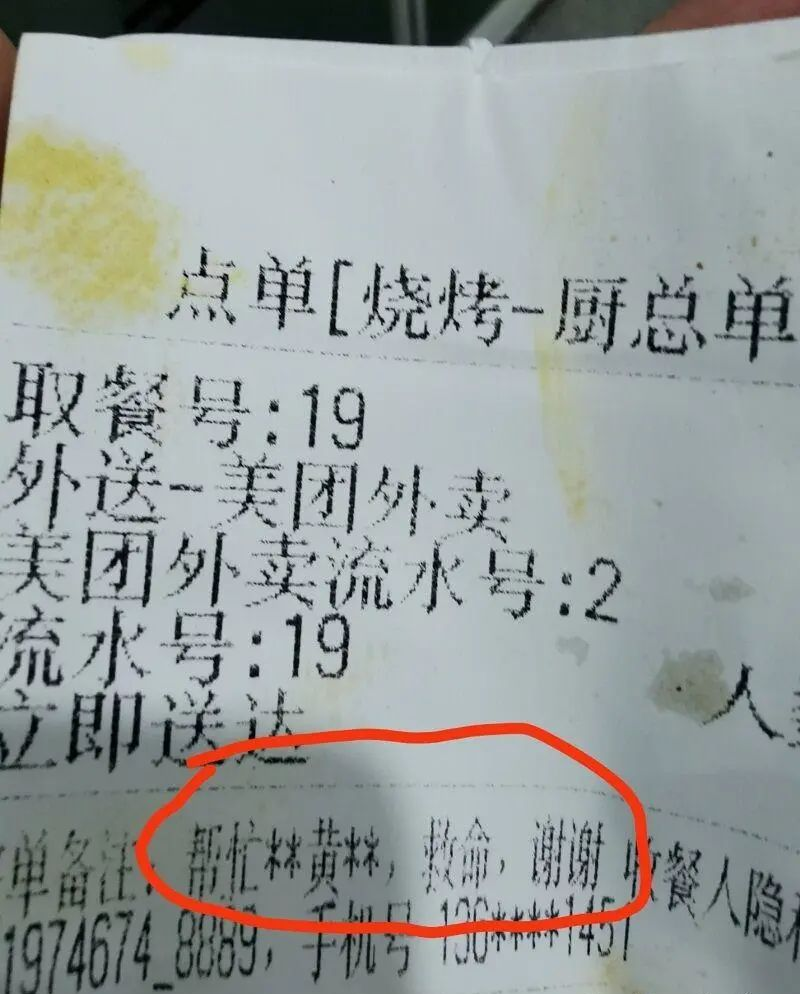 点单[烧烤-厨总单
取餐号:19
外送-美团外卖
美团外卖流水号:2
流水号:19
立即送达
人
单备注: 帮忙**黄**, 救命, 谢谢 收餐人隐私
1974674_8889, 手机号 136****1451